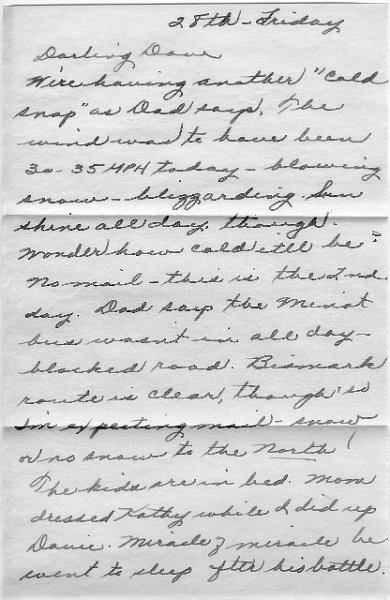 28th - Friday
Darling Dave
We're having another "cold
snap" as Dad says. The
wind was to have been
30-35 MPH today - blowing
snow - blizzarding. Sun
shine all day, though.
Wonder how cold it'll be?
No mail - this is the 2nd
day. Dad say the Minot
bus wasn't in all day -
blocked road. Bismark
route is clear, though so
I'm expecting mail - snow
or no snow to the North!
The kids are in bed. Mom
dressed Kathy while I did up
Davie. Miracle of miracle he
went to sleep after his bottle.